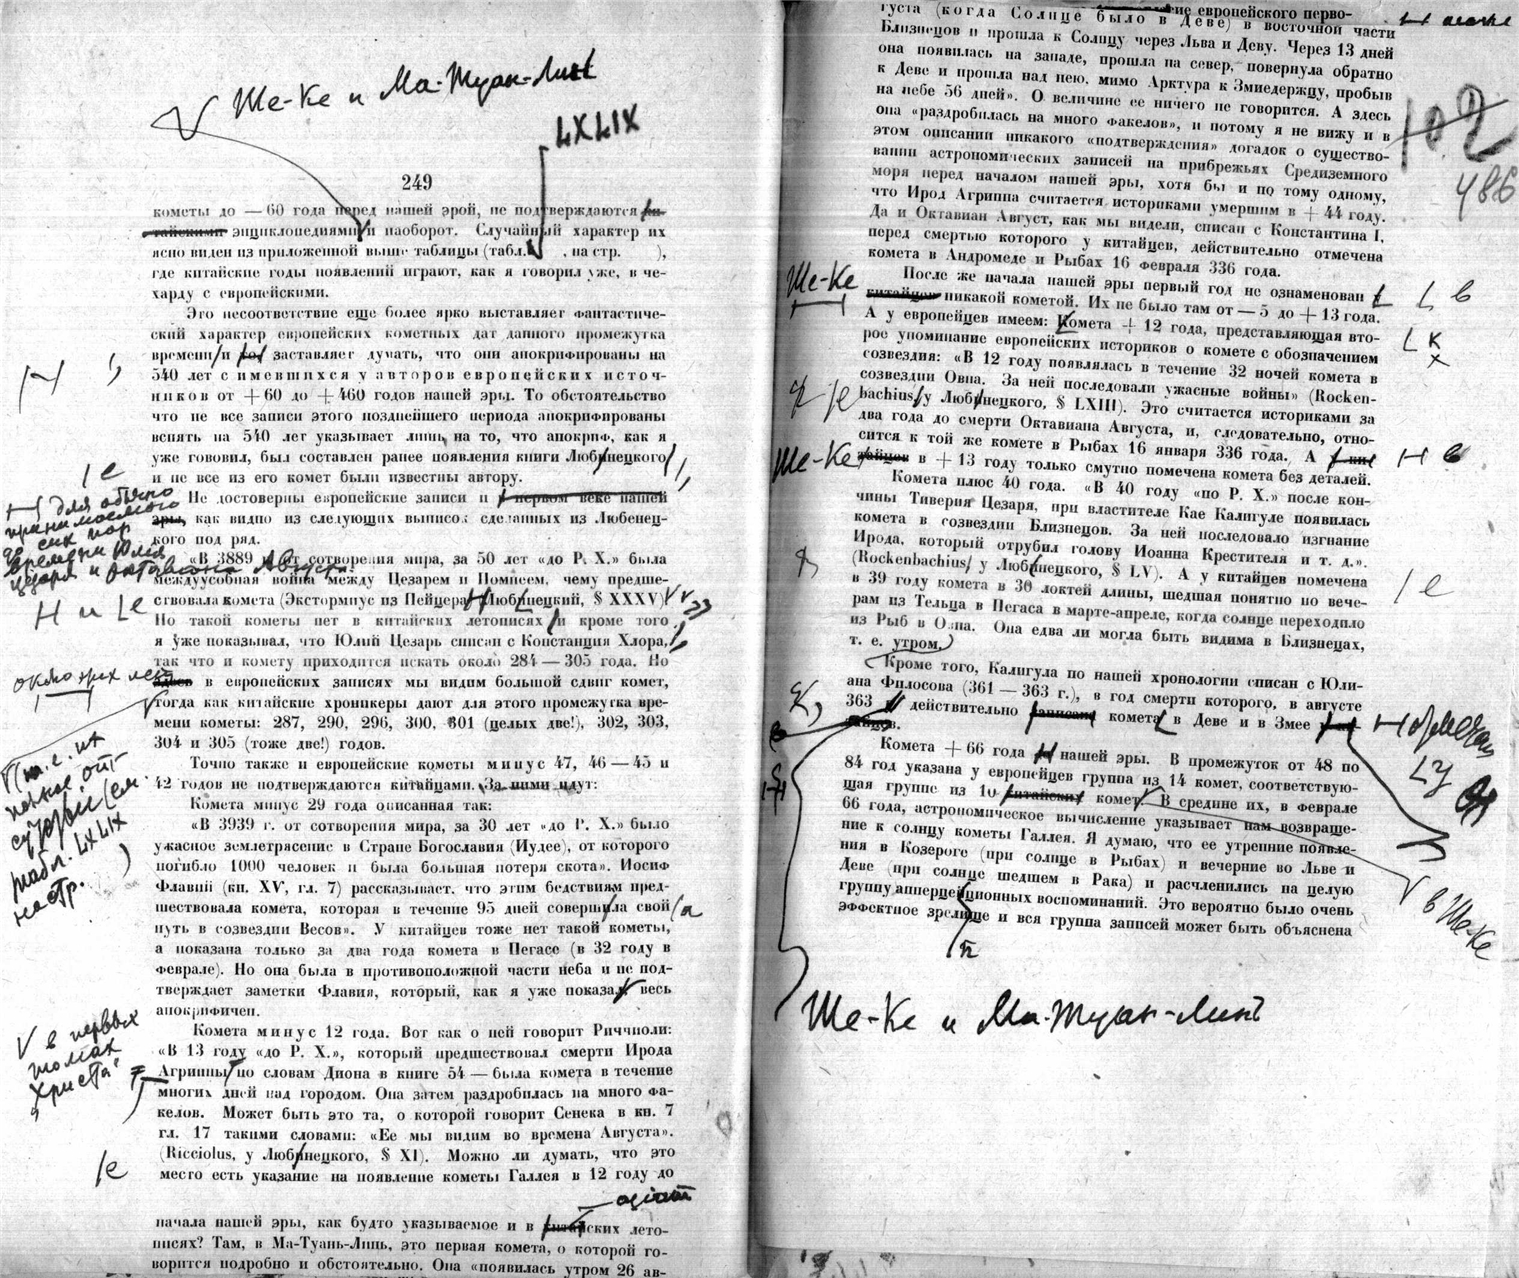 Ше-Ке и Ма-Туан-Лин
LXLIX
249
кометы до — 60 года перед нашей эрой, не подтверждаются ки-
тайскими энциклопедиями и наоборот. Случайный характер их
ясно виден из приложенной выше таблицы (табл. , на стр. ),
где китайские годы появлений играют, как я говорил уже, в че-
харду с европейскими.
Это несоответствие еще более ярко выставляет фантастиче-
ский характер европейских кометных дат данного промежутка
времени и заставляет думать, что они апокрифированы на
540 лет с имевшихся у авторов европейских источ-
ников от +60 до +460 годов нашей эры. То обстоятельство
что не все записи этого позднейшего периода апокрифированы
вспять на 540 лет указывает лишь на то, что апокриф, как я
уже говорил, был составлен ранее появления книги Любинецкого
и не все из его комет были известны автору.
Не достоверны европейские записи и в первом веке нашей
эры, как видно из следующих выписок сделанных из Любенец-
кого под ряд.
для обычно
принимаемого
до сих пор
времени Юлия
Цезаря и Октавиана Августа.
«В 3889 г. от сотворения мира, за 50 лет «до Р. Х.» была
междуусобная война между Цезарем и Помпеем, чему предше-
ствовала комета (Экстормиус из Пейцера Любинецкий, § XXXV)
Но такой кометы нет в китайских летописях и кроме того
я уже показывал, что Юлий Цезарь списан с Констанция Хлора,
так что и комету приходится искать около 284 — 305 года. Но
около этих лет
в европейских записях мы видим большой сдвиг комет,
тогда как китайские хроникеры дают для этого промежутка вре-
мени кометы: 287, 290, 296, 300, 301 (целых две!), 302, 303,
304 и 305 (тоже две!) годов.
Точно также и европейские кометы минус 47, 46 — 45 и
42 годов не подтверждаются китайцами. За ними идут:
(т. е. их
полное от-
(см.
табл. LXLIX
на стр. )
Комета минус 29 года описанная так:
«В 3939 г. от сотворения мира, за 30 лет «до Р. Х.» было
ужасное землетрясение в Стране Богославия (Иудее), от которого
погибло 1000 человек и была большая потеря скота». Иосиф
Флавий (кн. XV, гл. 7) рассказывает, что этим бедствиям пред-
шествовала комета, которая в течение 95 дней совершила свой
путь в созвездии Весов». У китайцев тоже нет такой кометы,
а показана только за два года комета в Пегасе (в 32 году в
феврале). Но она была в противоположной части неба и не под-
тверждает заметки Флавия, который, как я уже показал, весь
апокрифичен.
в первых
толках
Христа
Комета минус 12 года. Вот как о ней говорит Риччиоли:
«В 13 году «до Р. Х.», который предшествовал смерти Ирода
Агриппы по словам Диона в книге 54 — была комета в течение
многих дней над городом. Она затем раздробилась на много фа-
келов. Может быть это та, о которой говорит Сенека в кн. 7
гл. 17 такими словами: «Ее мы видим во времена Августа».
(Ricciolus, у Любинецкого, § XI). Можно ли думать, что это
место есть указание на появление кометы Галлея в 12 году до
начала нашей эры, как будто указываемое и в китайских лето-
писях? Там, в Ма-Туань-Линь, это первая комета, о которой го-
ворится подробно и обстоятельно. Она «появилась утром 26 ав-
европейского перво-
густа (когда Солнце было в Деве) в восточной части
Близнецов и прошла к Солнцу через Льва и Деву. Через 13 дней
она появилась на западе, прошла на север, повернула обратно
к Деве и прошла над нею, мимо Арктура к Змиедержцу, пробыв
на небе 56 дней». О величине ее ничего не говорится. А здесь
она «раздробилась на много факелов», и потому я не вижу и в
этом описании никакого «подтверждения» догадок о существо-
вании астрономических записей на прибрежьях Средиземного
моря перед началом нашей эры, хотя бы и по тому одному,
что Ирод Агриппа считается историками умершим в + 44 году.
Да и Октавиан Август, как мы видели, списан с Константина I,
перед смертью которого у китайцев, действительно отмечена
комета в Андромеде и Рыбах 16 февраля 336 года.
102
486
Ше-Ке
После же начала нашей эры первый год не ознаменован
китайцев никакой кометой. Их не было там от — 5 до + 13 года.
А у европейцев имеем: Комета + 12 года, представляющая вто-
рое упоминание европейских историков о комете с обозначением
созвездия: «В 12 году появлялась в течение 32 ночей комета в
созвездии Овна. За ней последовали ужасные войны» (Rocken-
bachius, у Любинецкого, § LXIII). Это считается историками за
два года до смерти Октавиана Августа, и, следовательно, отно-
сится к той же комете в Рыбах 16 января 336 года. А у ки-
Ше-Ке
тайцев в + 13 году только смутно помечена комета без деталей.
Комета плюс 40 года. «В 40 году «по Р. Х.» после кон-
чины Тиверия Цезаря, при властителе Кае Калигуле появилась
комета в созвездии Близнецов. За ней последовало изгнание
Ирода, который отрубил голову Иоанна Крестителя и т. д.».
(Rockenbachius у Любинецкого, § LV). А у китайцев помечена
в 39 году комета в 30 локтей длины, шедшая понятно по вече-
рам из Тельца в Пегаса в марте-апреле, когда солнце переходило
из Рыб в Овна. Она едва ли могла быть видима в Близнецах,
т. е. утром.
Кроме того, Калигула по нашей хронологии списан с Юли-
ана Философа (361 — 363 г.), в год смерти которого, в августе
363 действительно записана комета в Деве и в Змее
Комета + 66 года нашей эры. В промежуток от 48 по
84 год указана у европейцев группа из 14 комет, соответствую-
щая группе из 10 китайских комет. В средине их, в феврале
66 года, астрономическое вычисление указывает нам возвраще-
ние к солнцу кометы Галлея. Я думаю, что ее утренние появле-
ния в Козероге (при солнце в Рыбах) и вечерние во Льве и
Деве (при солнце шедшем в Рака) и расчленились на целую
группу апперцепционных воспоминаний. Это вероятно было очень
эффектное зрелище и вся группа записей может быть объяснена
в Ше-Ке
Ше-Ке и Ма-Туан-Лине